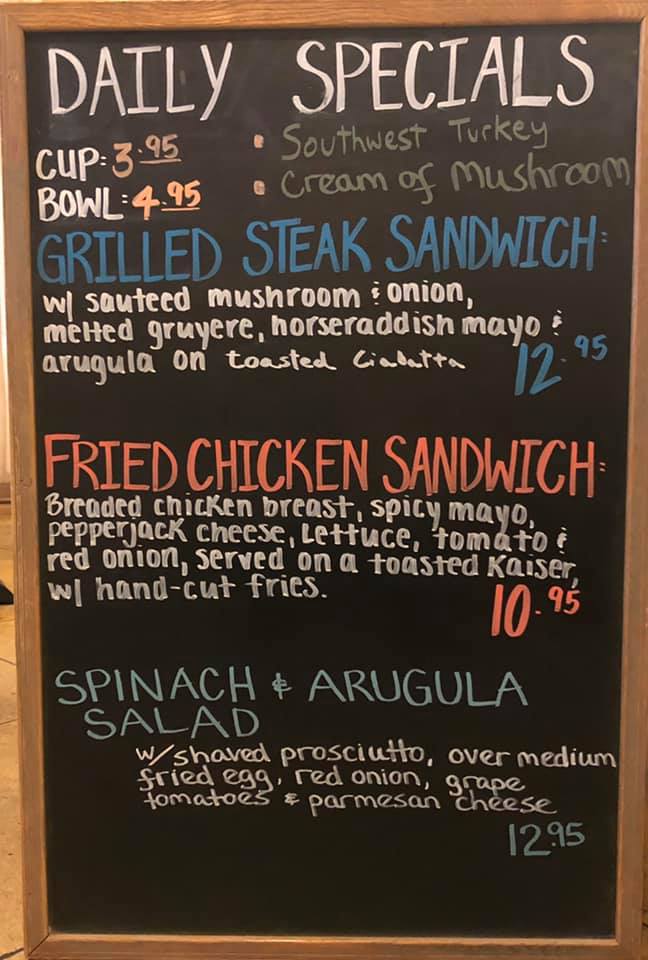 DAILY SPECIALS
CUP: 3.95 • Southwest Turkey
BOWL: 4.95 • Cream of Mushroom
GRILLED STEAK SANDWICH:
w/ sauteed mushroom & onion,
melted gruyere, horseraddish mayo &
arugula on toasted Ciabatta 12.95
FRIED CHICKEN SANDWICH:
Breaded chicken breast, spicy mayo,
pepperjack cheese, Lettuce, tomato &
red onion, served on a toasted Kaiser,
w/ hand-cut fries.
10.95
SPINACH & ARUGULA
SALAD
w/ shaved prosciutto, over medium
fried egg, red onion, grape
tomatoes & parmesan cheese
12.95